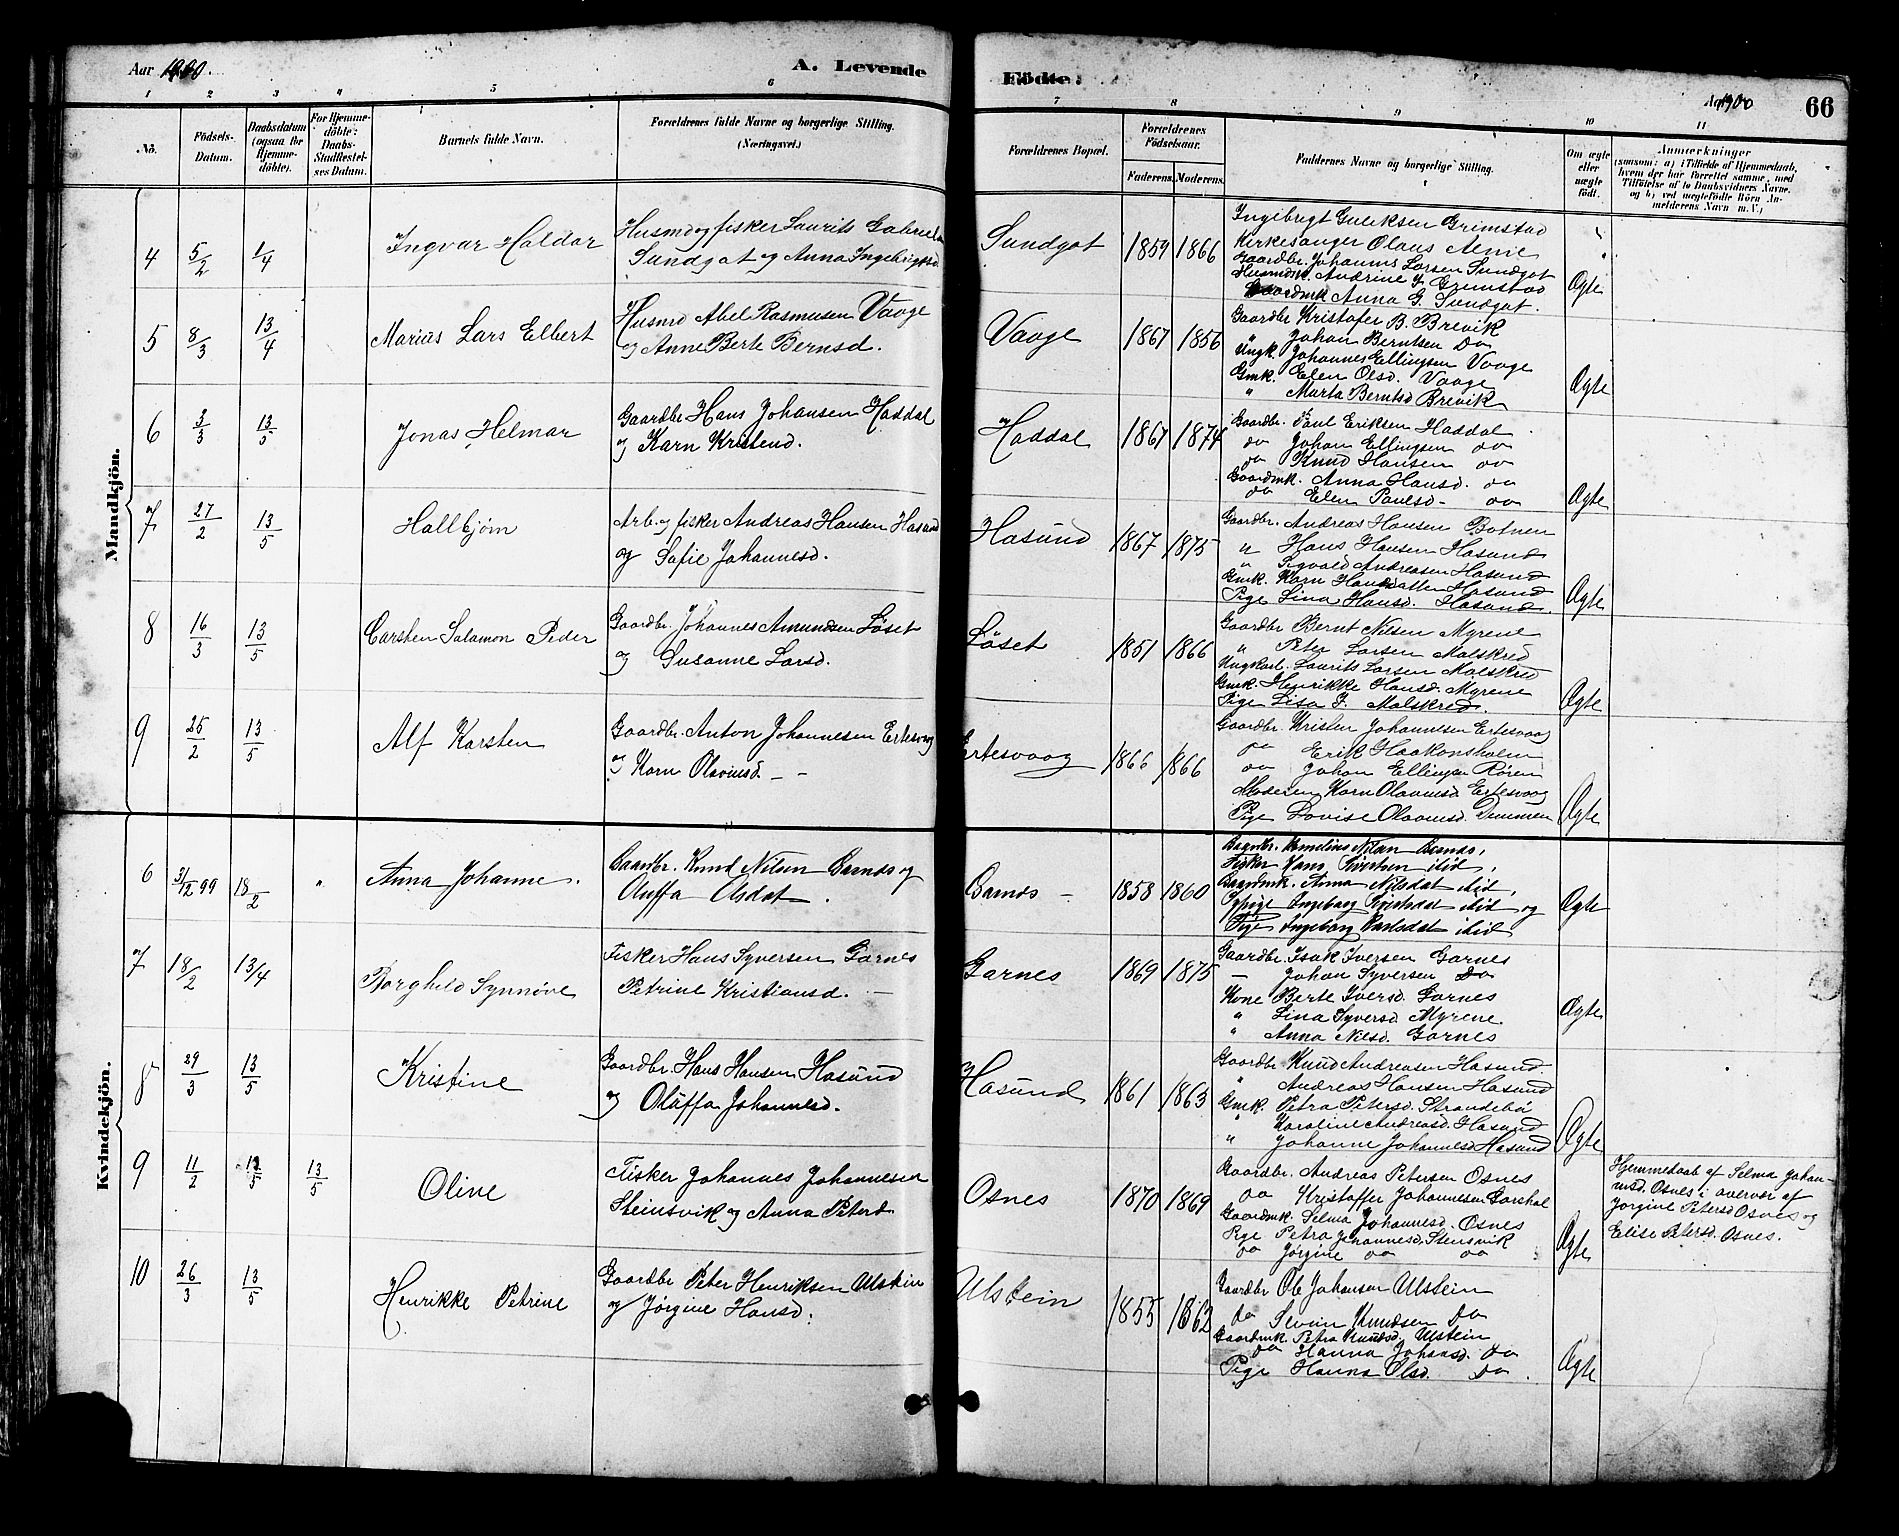 Aar 1900.
A. Levende
Födte.
Aar 1900
66
1 2 3 4 5 6 7 8 9 10 11
No.
Födsels-Datum.
Daabsdatum (ogsaa for Hjemmedöbte).
For Hjemmedöbte: Daabs-Stadfæstelses Datum.
Barnets fulde Navn.
Forældrenes fulde Navne og borgerlige Stilling. (Næringsvei.)
Forældrenes Bopæl.
Forældrenes Födselsaar.
Faderens. Moderens.
Faddernes Navne og borgerlige Stilling.
Om ægte eller uægte födt.
Anmærkninger
(saasom: a) i Tilfælde af Hjemmedaab, hvem der har forrettet samme, med Tilföielse af to Daabsvidners Navne, og b) ved uægtefödte Börn Anmelderens Navn m. V.)
Mandkjön.
4 5/2 1/4 Ingvar Haldor
Husmd og fisker Laurits Gabriels
Sundgot og Anna Ingebrigtsd.
Sundgot 1859 1866
Ingebrigt Guliksen Grimstad
Kirkesanger Olaus Aenie
Gaardbr. Johannes Larsen Sundgot
Husmdk. Andrine J. Grimstad
Gaardmk Anna G. Sundgot.
Ægte
5 8/3 13/4 Marius Lars Elbert
Husmd Abel Rasmusen Vaage
og Anne Berte Bernsd.
Vaage 1867 1856
Gaardbr Kristofer B. Brevik
" Johan Berntsen Do
Ungk. Johannes Ellingsen Vaage
Gmk. Elen Olsd. Vaage
" Marta Berntsd Brevik
Ægte
6 3/3 13/5 Jonas Helmar
Gaardbr Hans Johansen Haddal
og Karn Kristend.
Haddal 1867 1874
Gaardbr. Paul Eriksen Haddal
do Johan Ellingsen do
do Knud Hansen do
Gaardmk. Anna Hansd. do
do Elen Paulsd. do
Ægte
7 27/2 13/5 Hallbjørn
Arb. og fisker Andreas Hansen Hasund
og Sofie Johannesd.
Hasund 1867 1875
Gaardbr. Andreas Hansen Botnen
" Hans Hansen Hasund
" Sigvald Andreasen Hasund
Gmk. Karn Hansdatter Hasund
Pige Lina Hansd. Hasund
Ægte
8 16/3 13/5 Carsten Salamon Peder
Gaardbr. Johannes Amundsen Løset
og Susanne Larsd.
Løset 1851 1866
Gaardbr Bernt Nilsen Myrene
" Peter Larsen Malskred
Ungkarl. Laurits Larsen Malskred
Gmk. Henrikke Hansd. Myrene
Pige Lisa J. Malskred.
Ægte
9 25/2 13/5 Alf Karsten
Gaardbr. Anton Johannesen Ertesvaag
og Karn Olavusd. — —
Ertesvaag 1866 1866
Gaardbr. Kristen Johannesen Ertesvaag
do Erik Haakonsholm
do Johan Ellingsen Røren
Moderen Karn Olavusd. Ertesvaag
Pige Lovise Olavusd. Dimmen
Ægte
Kvindekjön.
6 3/12 99 18/2 " Anna Johanne.
Gaardbr. Knud Nilsen Garnes og
Oluffa Olsdat.
Garnes — 1858 1860
Gaardbr. Kornelius Nilsen Garnes,
Fisker Hans Sivertsen ibid,
Gaardmk. Anna Nilsdat ibid,
Pige Ingeborg Karlsdat ibid
Ægte
7 18/2 13/4 Borghild Synnøve
Fisker Hans Syversen Garnes
Petrine Kristiansd. —
Garnes 1869 1875
Gaardbr. Isak Iversen Garnes
— Johan Syversen Do
Kone Berte Iversd. Garnes
" Lina Syversd Myrene.
" Anna Nilsd. Garnes
Ægte
8 29/3 13/5 Kristine
Gaardbr. Hans Hansen Hasund
og Oluffa Johannesd.
Hasund 1861 1863
Gaardbr Knud Andreasen Hasund.
" Andreas Hansen Hasund
Gmk. Petra Petersd. Strandabø
" Karoline Andreasd. Hasund
" Johanne Johannesd Hasund
Ægte
9 11/2 13/5 13/5 Oline
Fisker Johannes Johannesen
Steinsvik og Anna Petersd.
Osnes 1870 1869
Gaardbr. Andreas Petersen Osnes
do Kristoffer Johannesen Garshol
Gaardmk. Selma Johannesd. Osnes
Pige Petra Johannesd. Stensvik
do Jørgine do do
Ægte
Hjemmedaab af Selma Johan-
nesd. Osnes i overvær af
Jørgine Petersd Osnes og
Elise Petersd. Osnes.
10 26/3 13/5 Henrikke Petrine
Gaardbr Peter Henriksen Ulstein
og Jørgine Hansd.
Ulstein 1855 1862
Gaardbr Ole Johansen Ulstein
do Sevrin Knudsen Do
Gaardmk. Petra Knudsd. Ulstein
do Hanna Johansd. do
Pige Hanna Olsd. Do.
Ægte